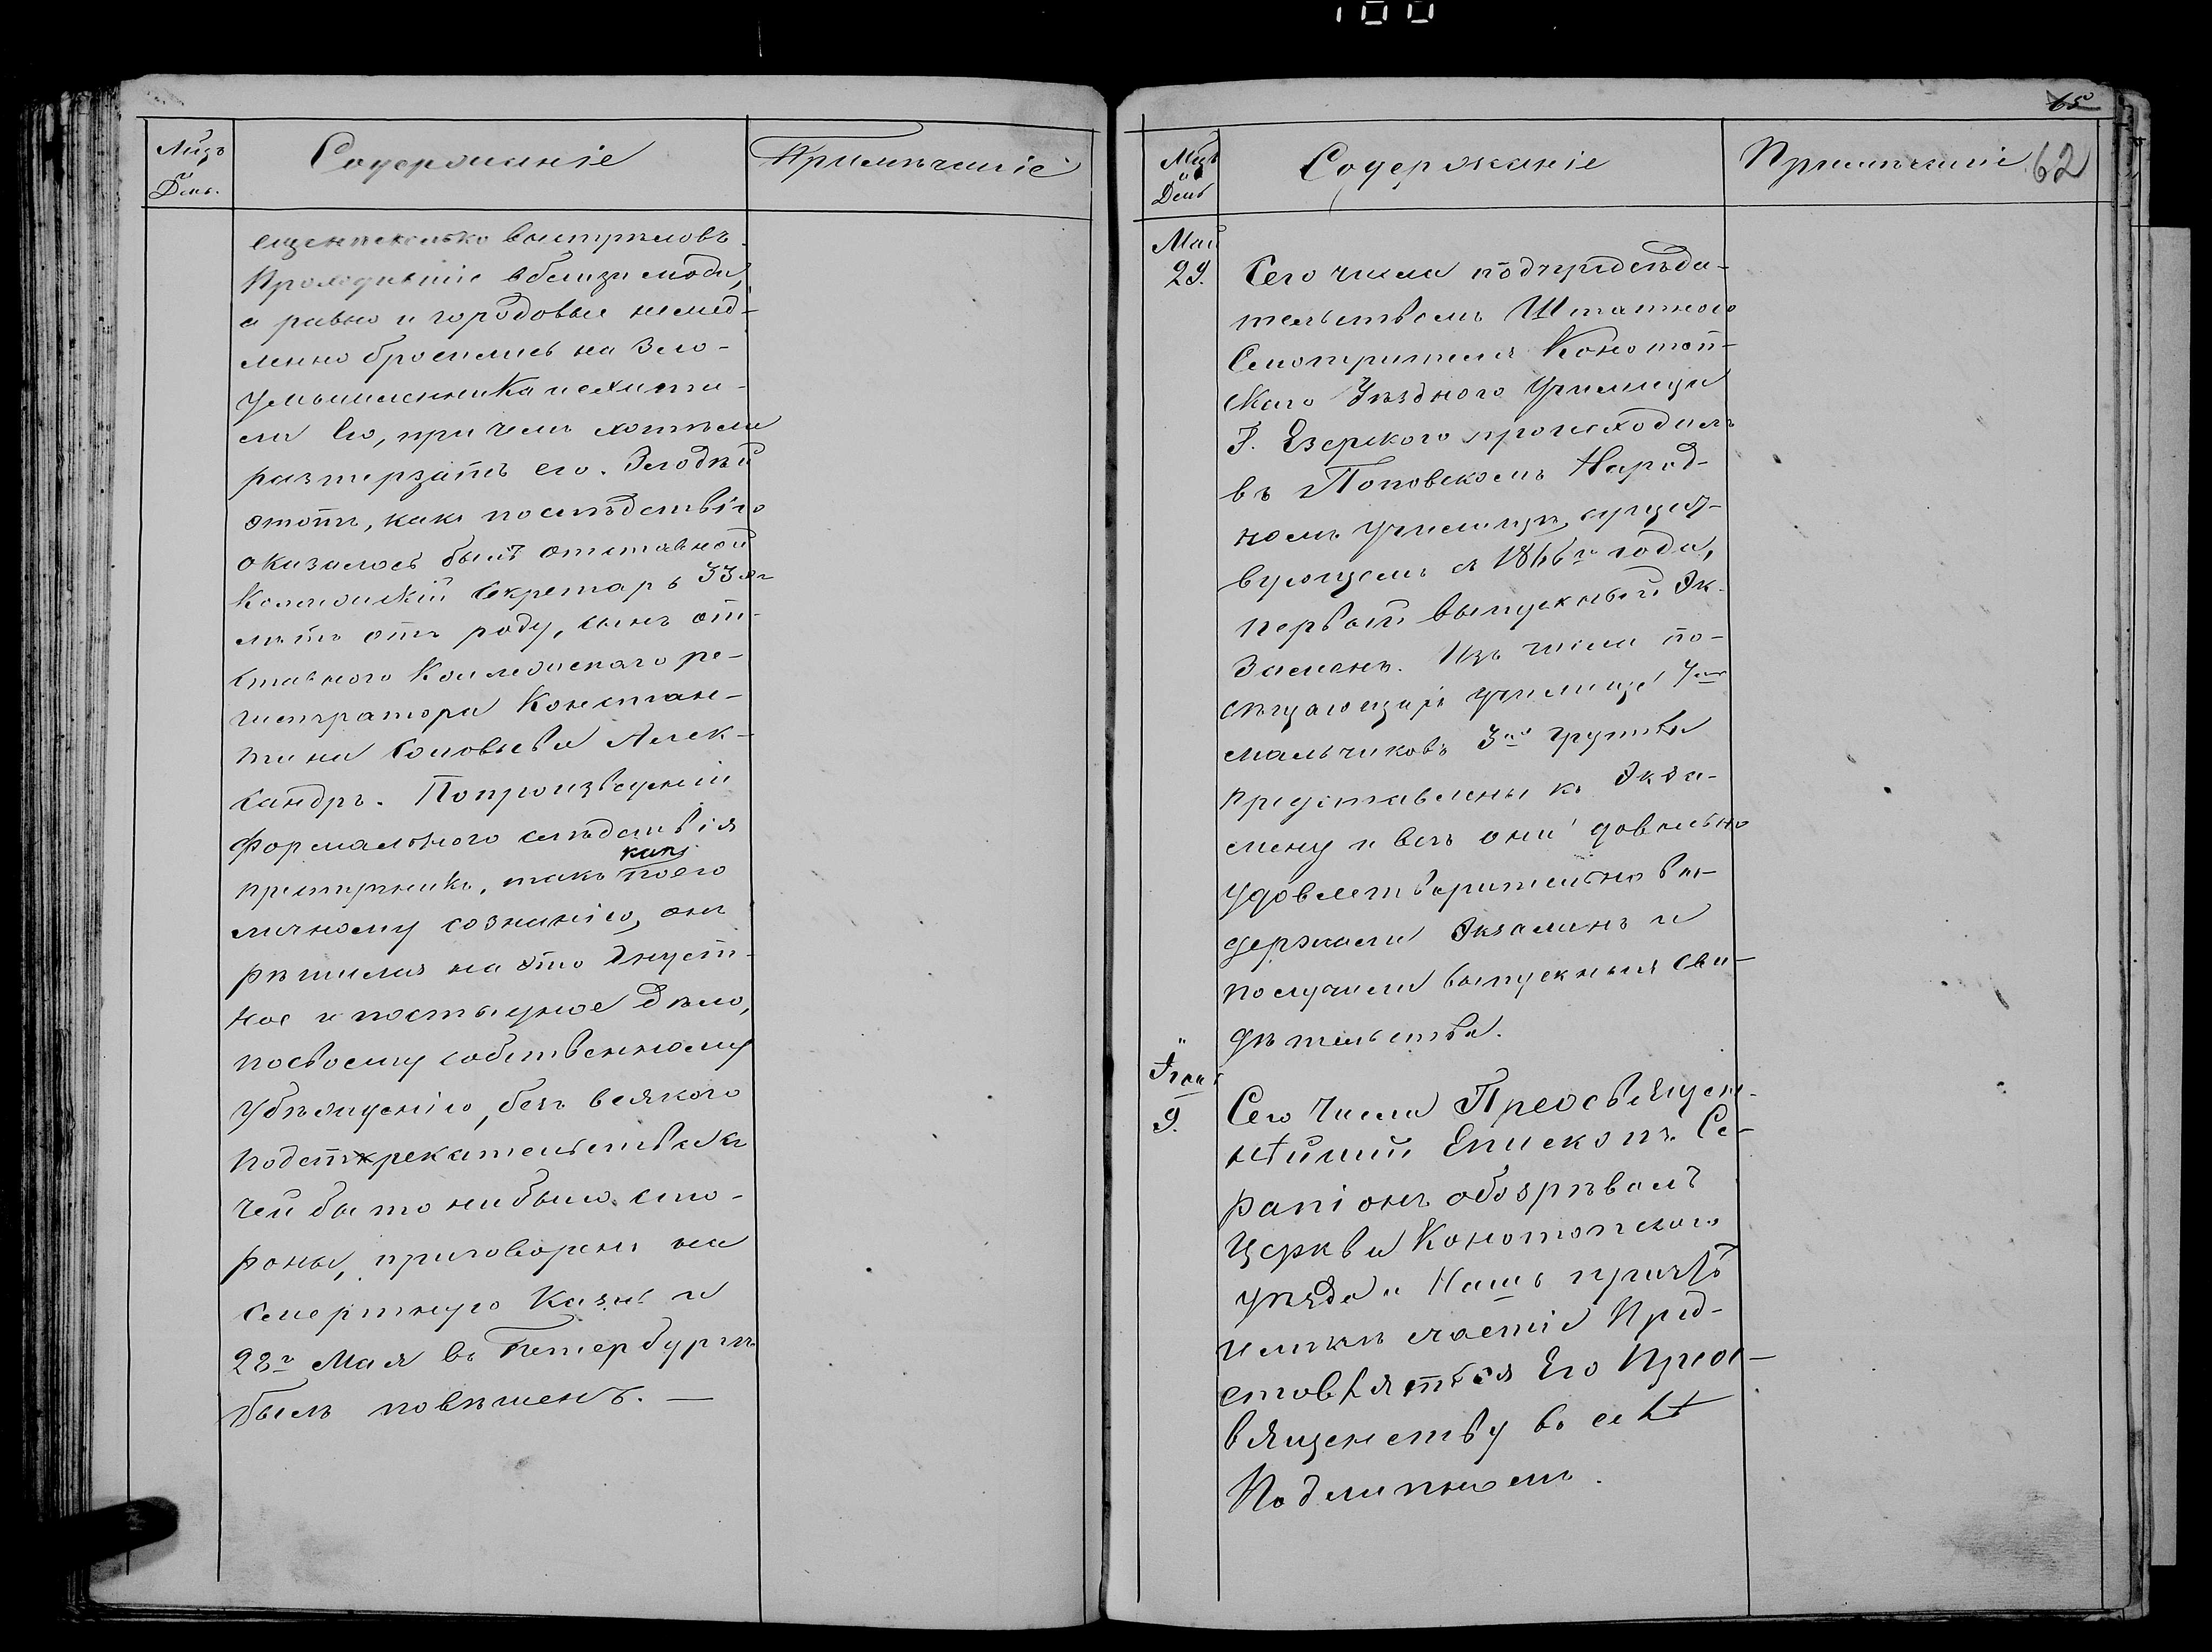 100
Мѣцъ
и
День.
Содержаніе
Примѣчаніе
еще нѣсколько выстрѣловъ.
Проходившіе вблизи люди,
а равно и городовые немед-
ленно бросились на зло-
умышленника и схвати-
ли Его, при чемъ хотѣли
разтерзать его. Злодѣй
этотъ, какъ послѣдствію
оказалось былъ отставной
Коллежскій Секретарь 33хъ
лѣтъ отъ роду, сынъ от-
ставного Коллежскаго ре-
гистратора Констан-
тина Соловьева Алек-
сандръ. По произведеніи
формальнаго слѣдствія
какъ
преступникъ, такъ по его
личному сознанію, онъ
рѣшился на это гнуст-
ное и постыдное дѣло,
по своему собственному
убѣжденію, безъ всякаго
подстрекательства съ
чей бы то ни было сто-
роны, приговоренъ на
смертную Казнь и
28г Мая въ Петербургѣ
былъ повѣшенъ. —
65
Мѣцъ
и
День
Содержаніе
Примѣчаніе
62
Май
29.
Сего числа подъ предсѣда-
тельствомъ Штатного
Смотрителя Конотоп-
скаго Уѣзднаго Училища
Г. Езерского происходилъ
въ Поповскомъ Народ-
номъ училищѣ, сущест-
вующемъ съ 1866г года,
первый выпускный Эк-
заменъ. Изъ числа по-
сѣщающихъ училище 7мь
мальчиковъ 3й группы
представлены къ Экза-
мену и всѣ они довольно
удовлетворительно вы-
держали Экзаменъ и
получили выпускныя сви-
дѣтельства.
"
Іюнь
9.
Сего Числа Преосвящен-
нѣйшій Епископъ Се-
рапіонъ обозрѣвалъ
Церкви Конотопскаго
уѣзда и Нашъ причтъ
имѣлъ счастіе Пред-
ставляться Его Преос-
вященству въ селѣ
Подлипномъ.